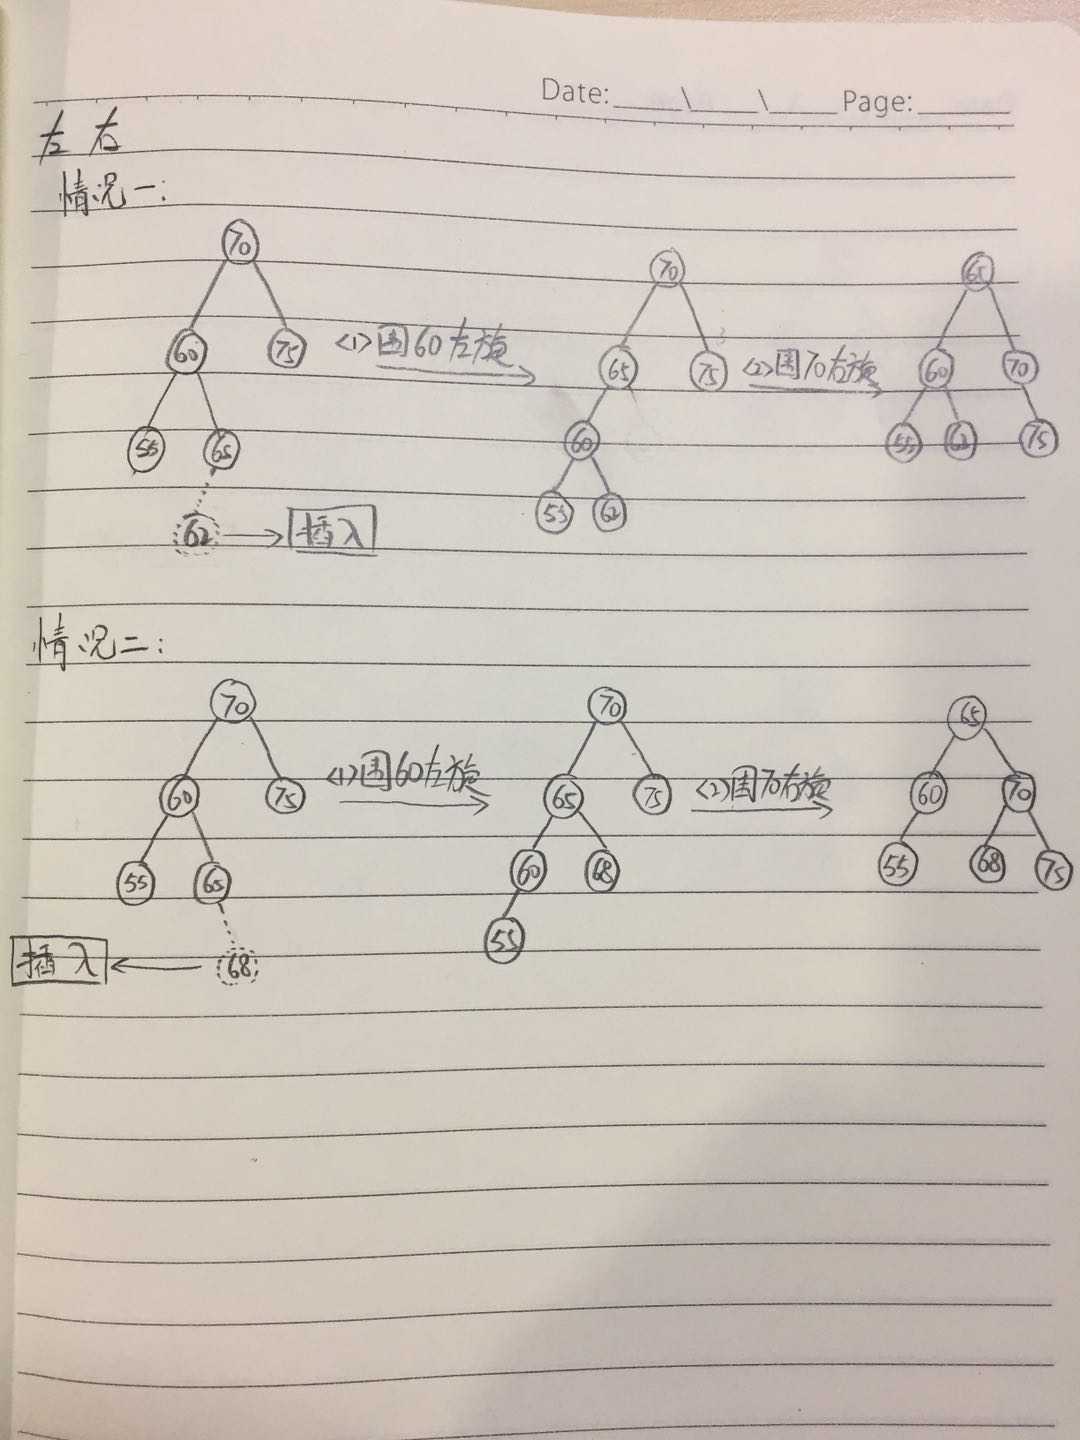 Date: \ \ Page:
左右
情况一:
70 70 65
60 75 <1>围60左旋 65 75 <2>围70右旋 60 70
55 65 60 55 62 75
62 插入 55 62
情况二:
70 70 65
60 75 <1>围60左旋 65 75 <2>围70右旋 60 70
55 65 60 68 55 68 75
插入 68 55